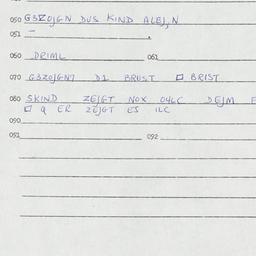 050 G3ZOJGN DUS KIND ALEJ,N
051
060 DRIML 061
070 G3ZOJGN7 D1 BRUST □ BRIST
080 SKIND ZEJGT NOX O4LC DEJM E
□ 9 ER ZEJGT ES ILC
090
091 092